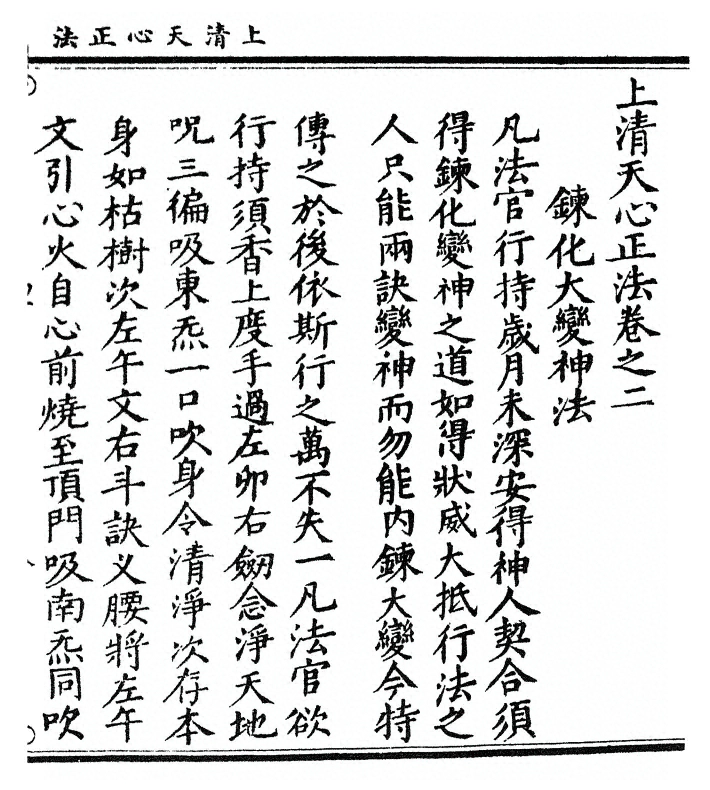 上清天心正法
上清天心正法卷之二
鍊化大變神法
凡法官行持歲月未深安得神人契合須
得鍊化變神之道如得狀威大抵行法之
人只能兩訣變神而勿能內鍊大變今特
傳之於後依斯行之萬不失一凡法官欲
行持須香上度手過左卯右劒念淨天地
呪三徧吸東炁一口吹身令清淨次存本
身如枯樹次左午文右斗訣义腰將左午
文引心火自心前燒至頂門吸南炁同吹